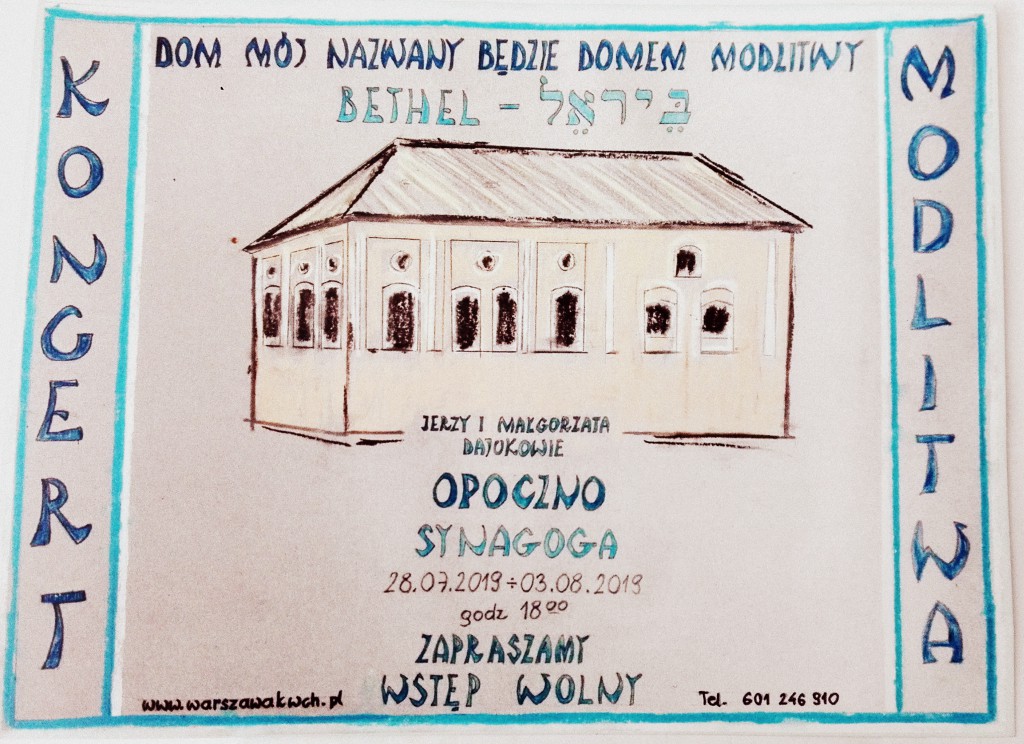 KONCERT
DOM MÓJ NAZWANY BĘDZIE DOMEM MODLITWY
BETHEL – בֵּיראֵל
JERZY I MAŁGORZATA
DAJUKOWIE
OPOCZNO
SYNAGOGA
28.07.2019÷03.08.2019
godz 18⁰⁰
ZAPRASZAMY
WSTĘP WOLNY
www.warszawakwch.pl
Tel. 601 246 910
MODLITWA